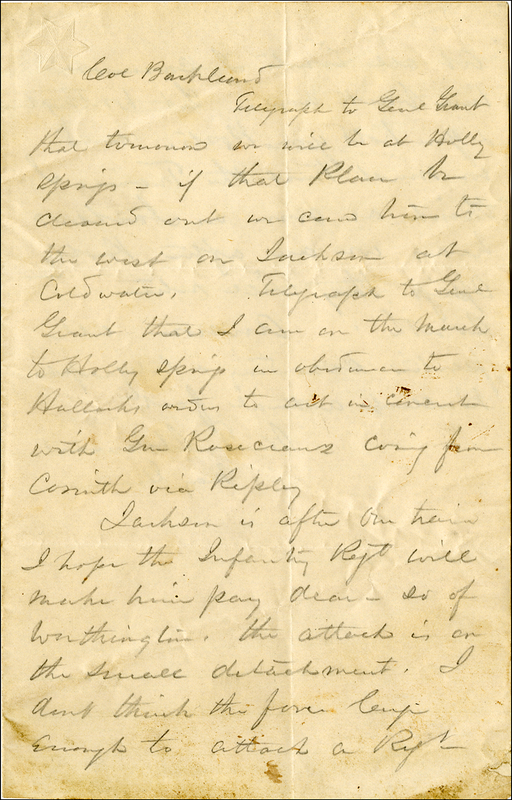 Col Buckland
Telegraph to Genl Grant
that tomorrow we will be at Holly
Springs – if that place be
cleared out we can turn to
the west on Jackson at
Coldwater. Telegraph to Genl
Grant that I am on the March
to Holly Springs in obedience to
Hallecks orders to act in concert
with Gen Rosecrans coming from
Corinth via Ripley
Jackson is after our train
I hope the Infantry Regt will
make him pay dear – so of
Worthington. The attack is on
the small detachment. I
dont think the force large
enough to attack a Regt